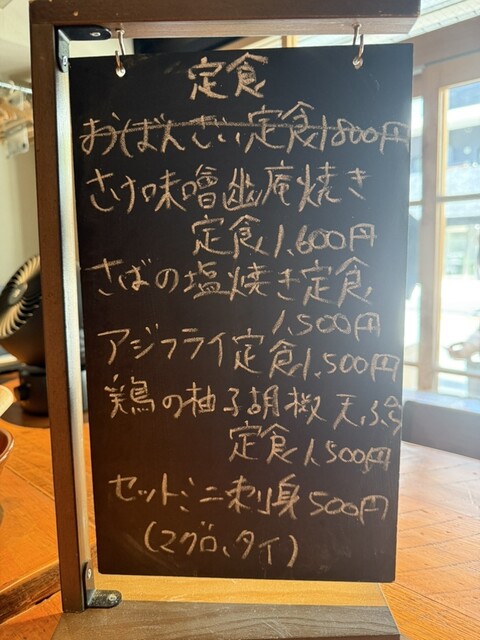 定食
おばんざい定食1,800円
さけ味噌幽庵焼き
定食1,600円
さばの塩焼き定食
1,500円
アジフライ定食1,500円
鶏の柚子胡椒天ぷら
定食1,500円
セットミニ刺身500円
(マグロ、タイ)